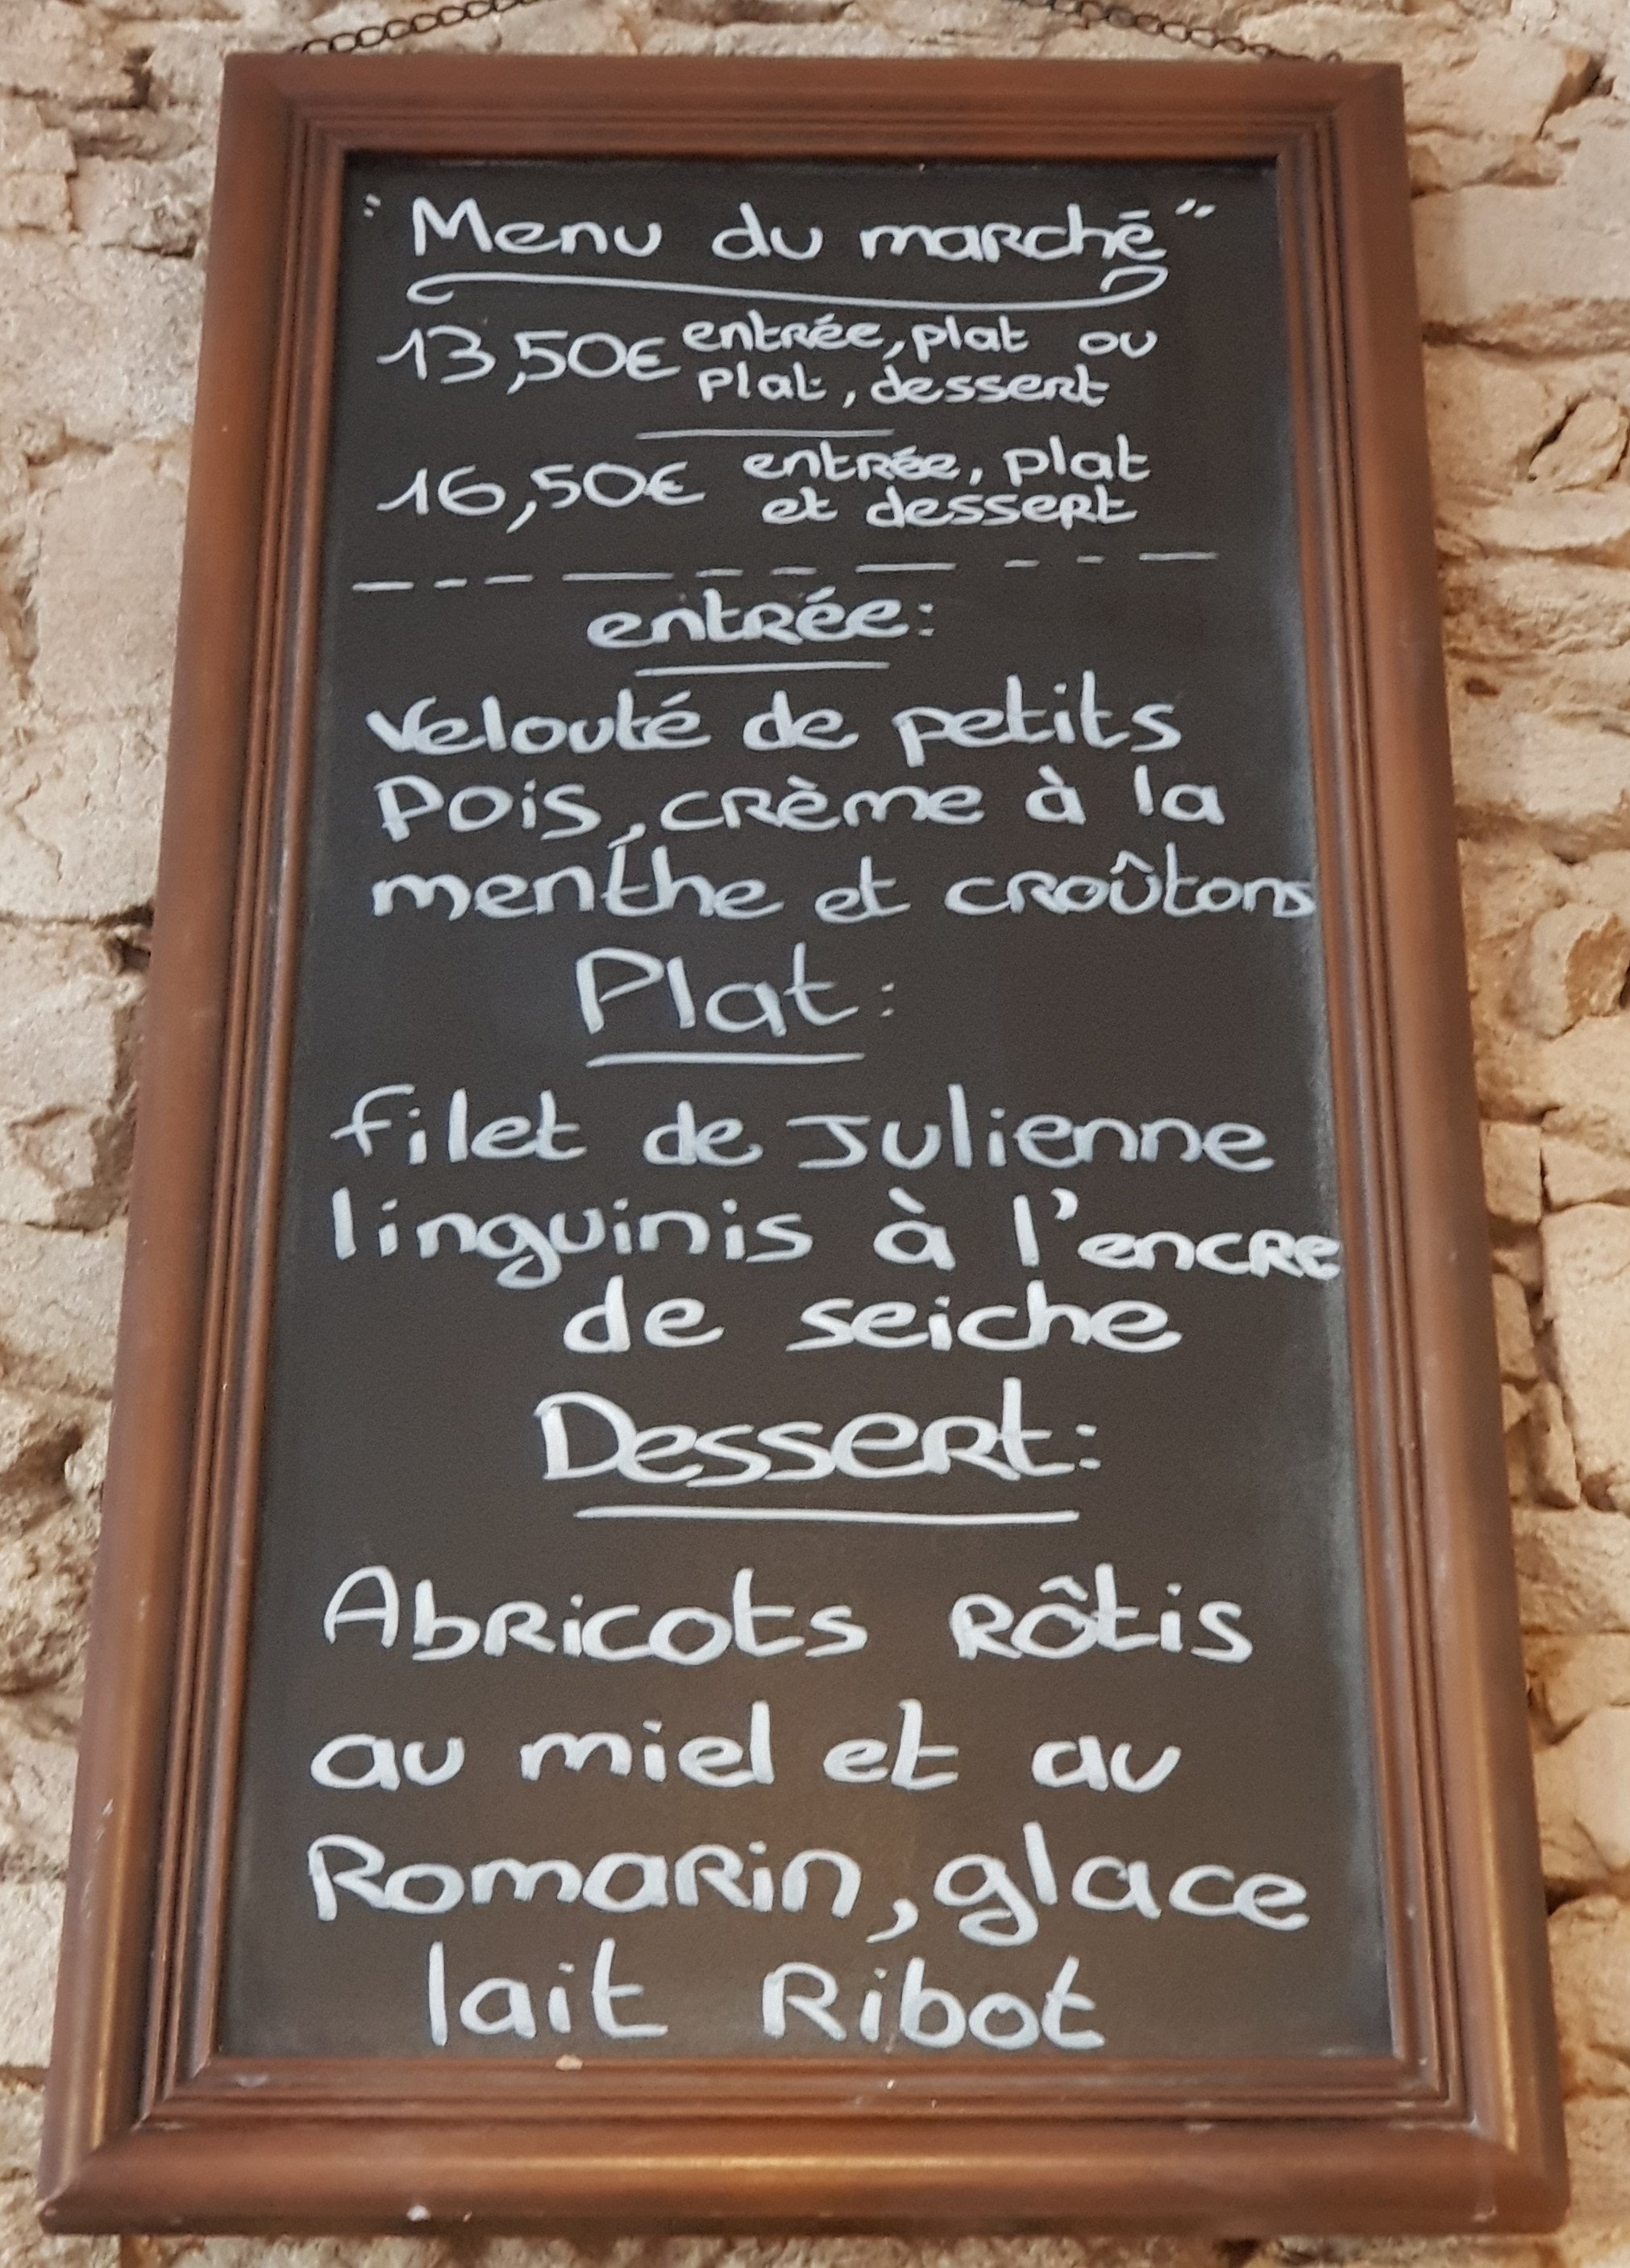 "Menu du marché"
13,50€ entrée, plat ou
plat, dessert
16,50€ entrée, plat
et dessert
entrée:
Velouté de petits
pois, crème à la
menthe et croûtons
Plat:
filet de Julienne
linguinis à l'encre
de seiche
Dessert:
Abricots rôtis
au miel et au
Romarin, glace
lait Ribot